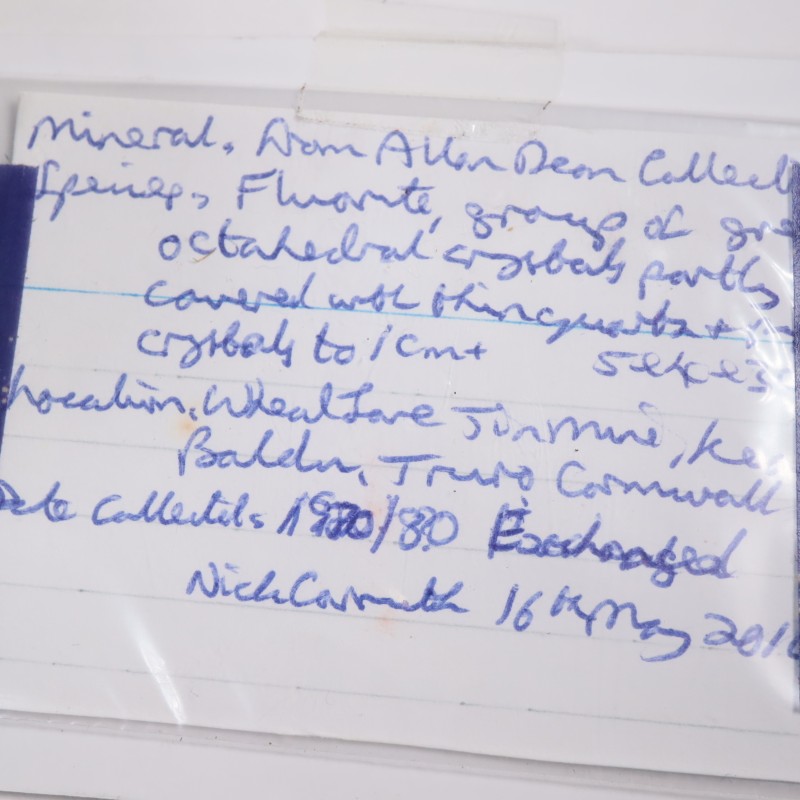 Mineral. From Allan Dean Collect
Species. Fluorite, group of gre
octahedral crystals partly
covered with thin quartz +
crystals to 1cm+
Location. Wheal Jane Tin Mine, Kea
Baldu, Truro Cornwall
Date Collected. 1970/80 Exchanged
Nick Carruth 16th May 201